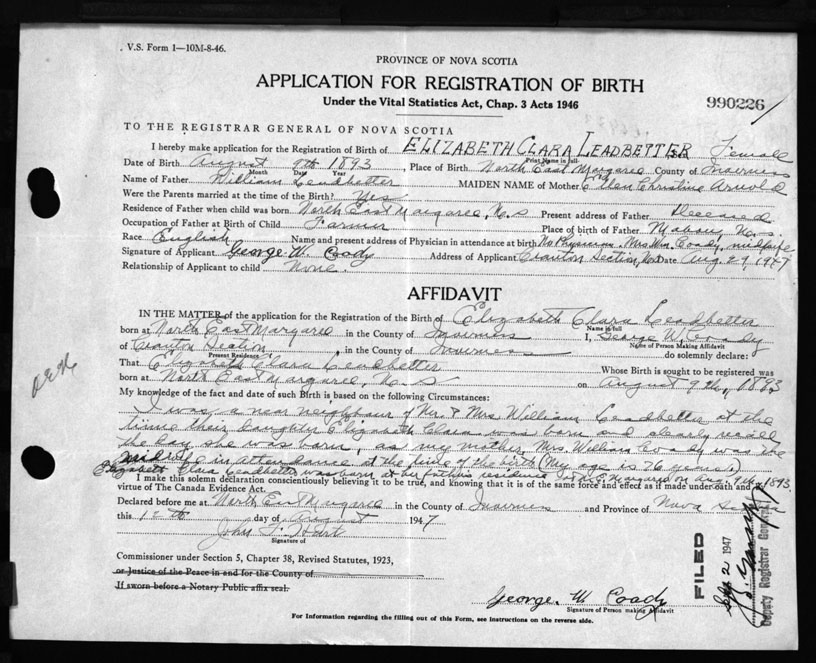 V.S. Form 1—10M-8-46.
PROVINCE OF NOVA SCOTIA
APPLICATION FOR REGISTRATION OF BIRTH
Under the Vital Statistics Act, Chap. 3 Acts 1946
990226
TO THE REGISTRAR GENERAL OF NOVA SCOTIA
I hereby make application for the Registration of Birth of ELIZABETH CLARA LEADBETTER Female
Print Name in full
Date of Birth August 9th 1893, Place of Birth North East Margaree County of Inverness
Month Date Year
Name of Father William Leadbetter MAIDEN NAME of Mother Ellen Christina Arnold
Were the Parents married at the time of the Birth? Yes
Residence of Father when child was born North East Margaree, N.S Present address of Father Deceased
Occupation of Father at Birth of Child Farmer Place of birth of Father Mabou N.S.
Race English Name and present address of Physician in attendance at birth No Physician. Mrs Wm. Coady, midwife
Signature of Applicant George W. Coady Address of Applicant Cranton Section, N.S. Date Aug. 29, 1947
Relationship of Applicant to child None.
AFFIDAVIT
IN THE MATTER of the application for the Registration of the Birth of Elizabeth Clara Leadbetter
Name in full
born at North East Margaree in the County of Inverness I, George W. Coady
Name of Person Making Affidavit
of Cranton Section, in the County of Inverness do solemnly declare:
Present Residence
That Elizabeth Clara Leadbetter Whose Birth is sought to be registered was
born at North East Margaree, N.S on August 9th, 1893
My knowledge of the fact and date of such Birth is based on the following Circumstances:
I was a near neighbour of Mr. & Mrs William Leadbetter at the
time their daughter Elizabeth Clara was born and clearly recall
the day she was born, as my mother, Mrs William Coady was the
midwife in attendance at the time of the birth (My age is 76 years).
Elizabeth Clara Leadbetter was born at her fathers residence North E. Margaree on Aug. 9th, 1893.
I make this solemn declaration conscientiously believing it to be true, and knowing that it is of the same force and effect as if made under oath and by
virtue of The Canada Evidence Act.
Declared before me at North East Margaree in the County of Inverness and Province of Nova Scotia
this 12th day of August 1947
John F. Hart
Signature of
Commissioner under Section 5, Chapter 38, Revised Statutes, 1923,
or Justice of the Peace in and for the County of
If sworn before a Notary Public affix seal.
George. W. Coady
Signature of Person making Affidavit
FILED
Sep 2 1947
Deputy Registrar General
For Information regarding the filling out of this Form, see instructions on the reverse side.